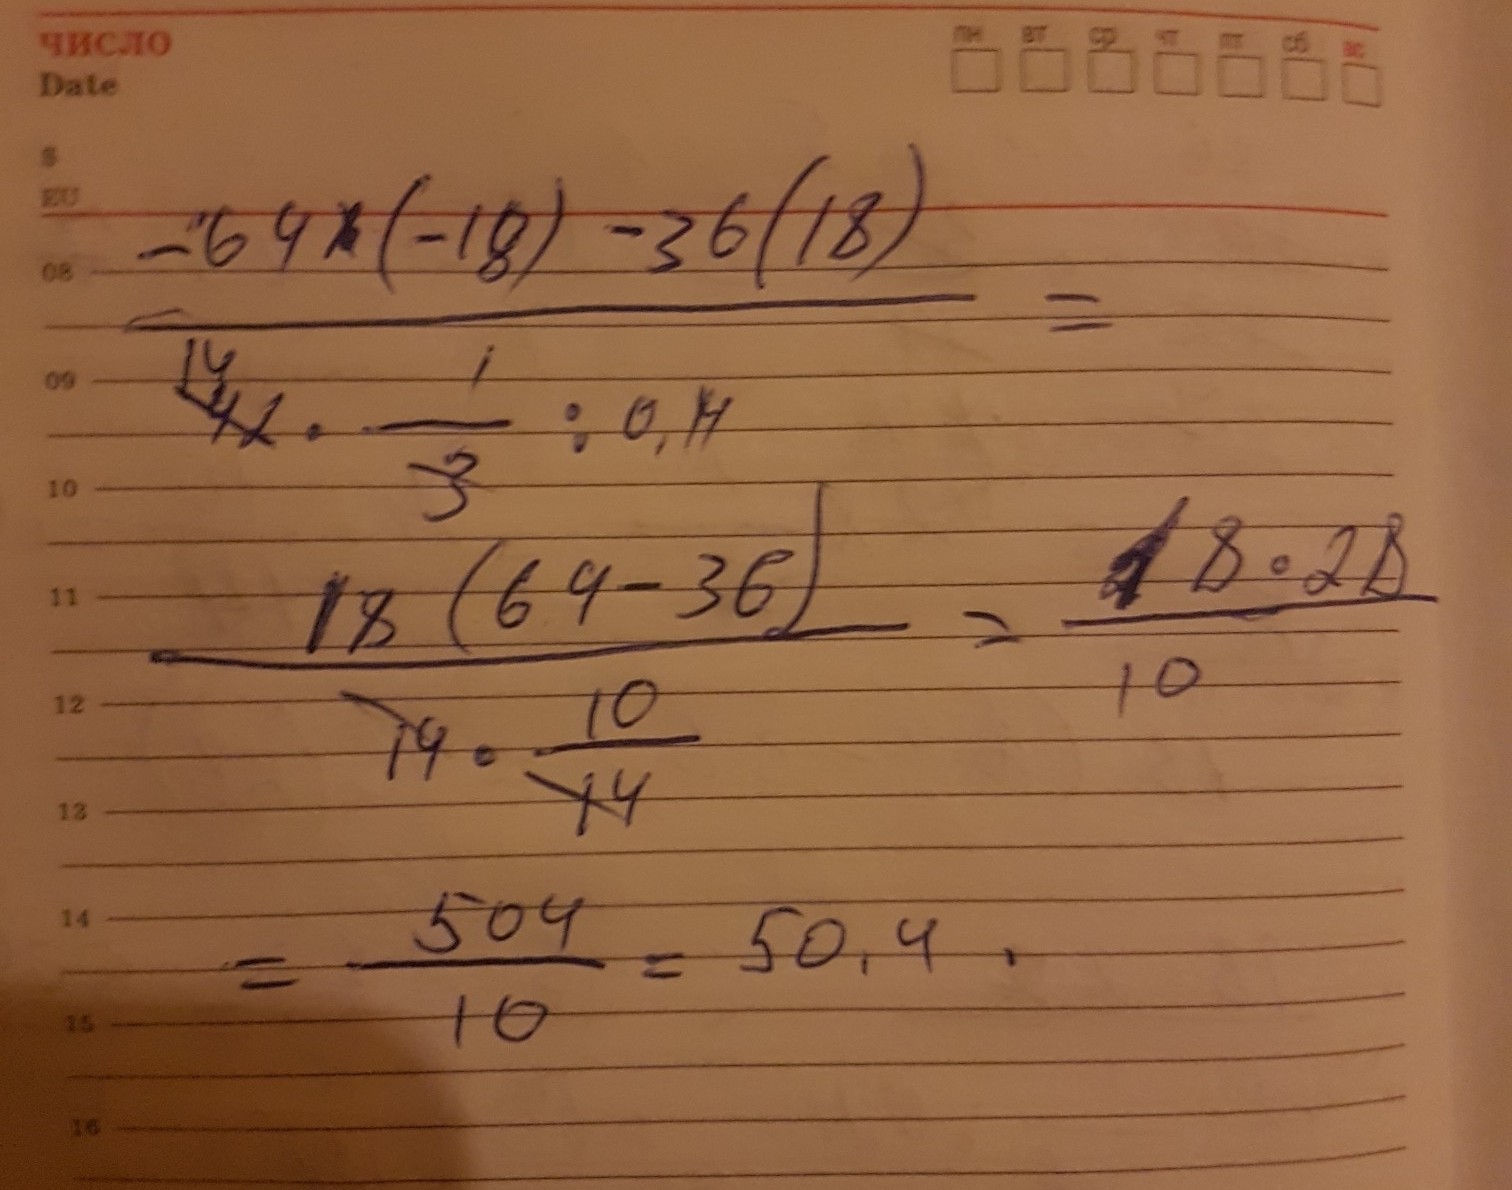 ЧИСЛО
Date
пн вт ср чт пт сб вс
$
EU
-64×(-18) -36(18)
08
=
14 1
09
42 · : 0,14
3
10
18 (64-36) = 18·28
11
10
12
10
14 ·
14
13
14
= 504 = 50,4.
10
15
16